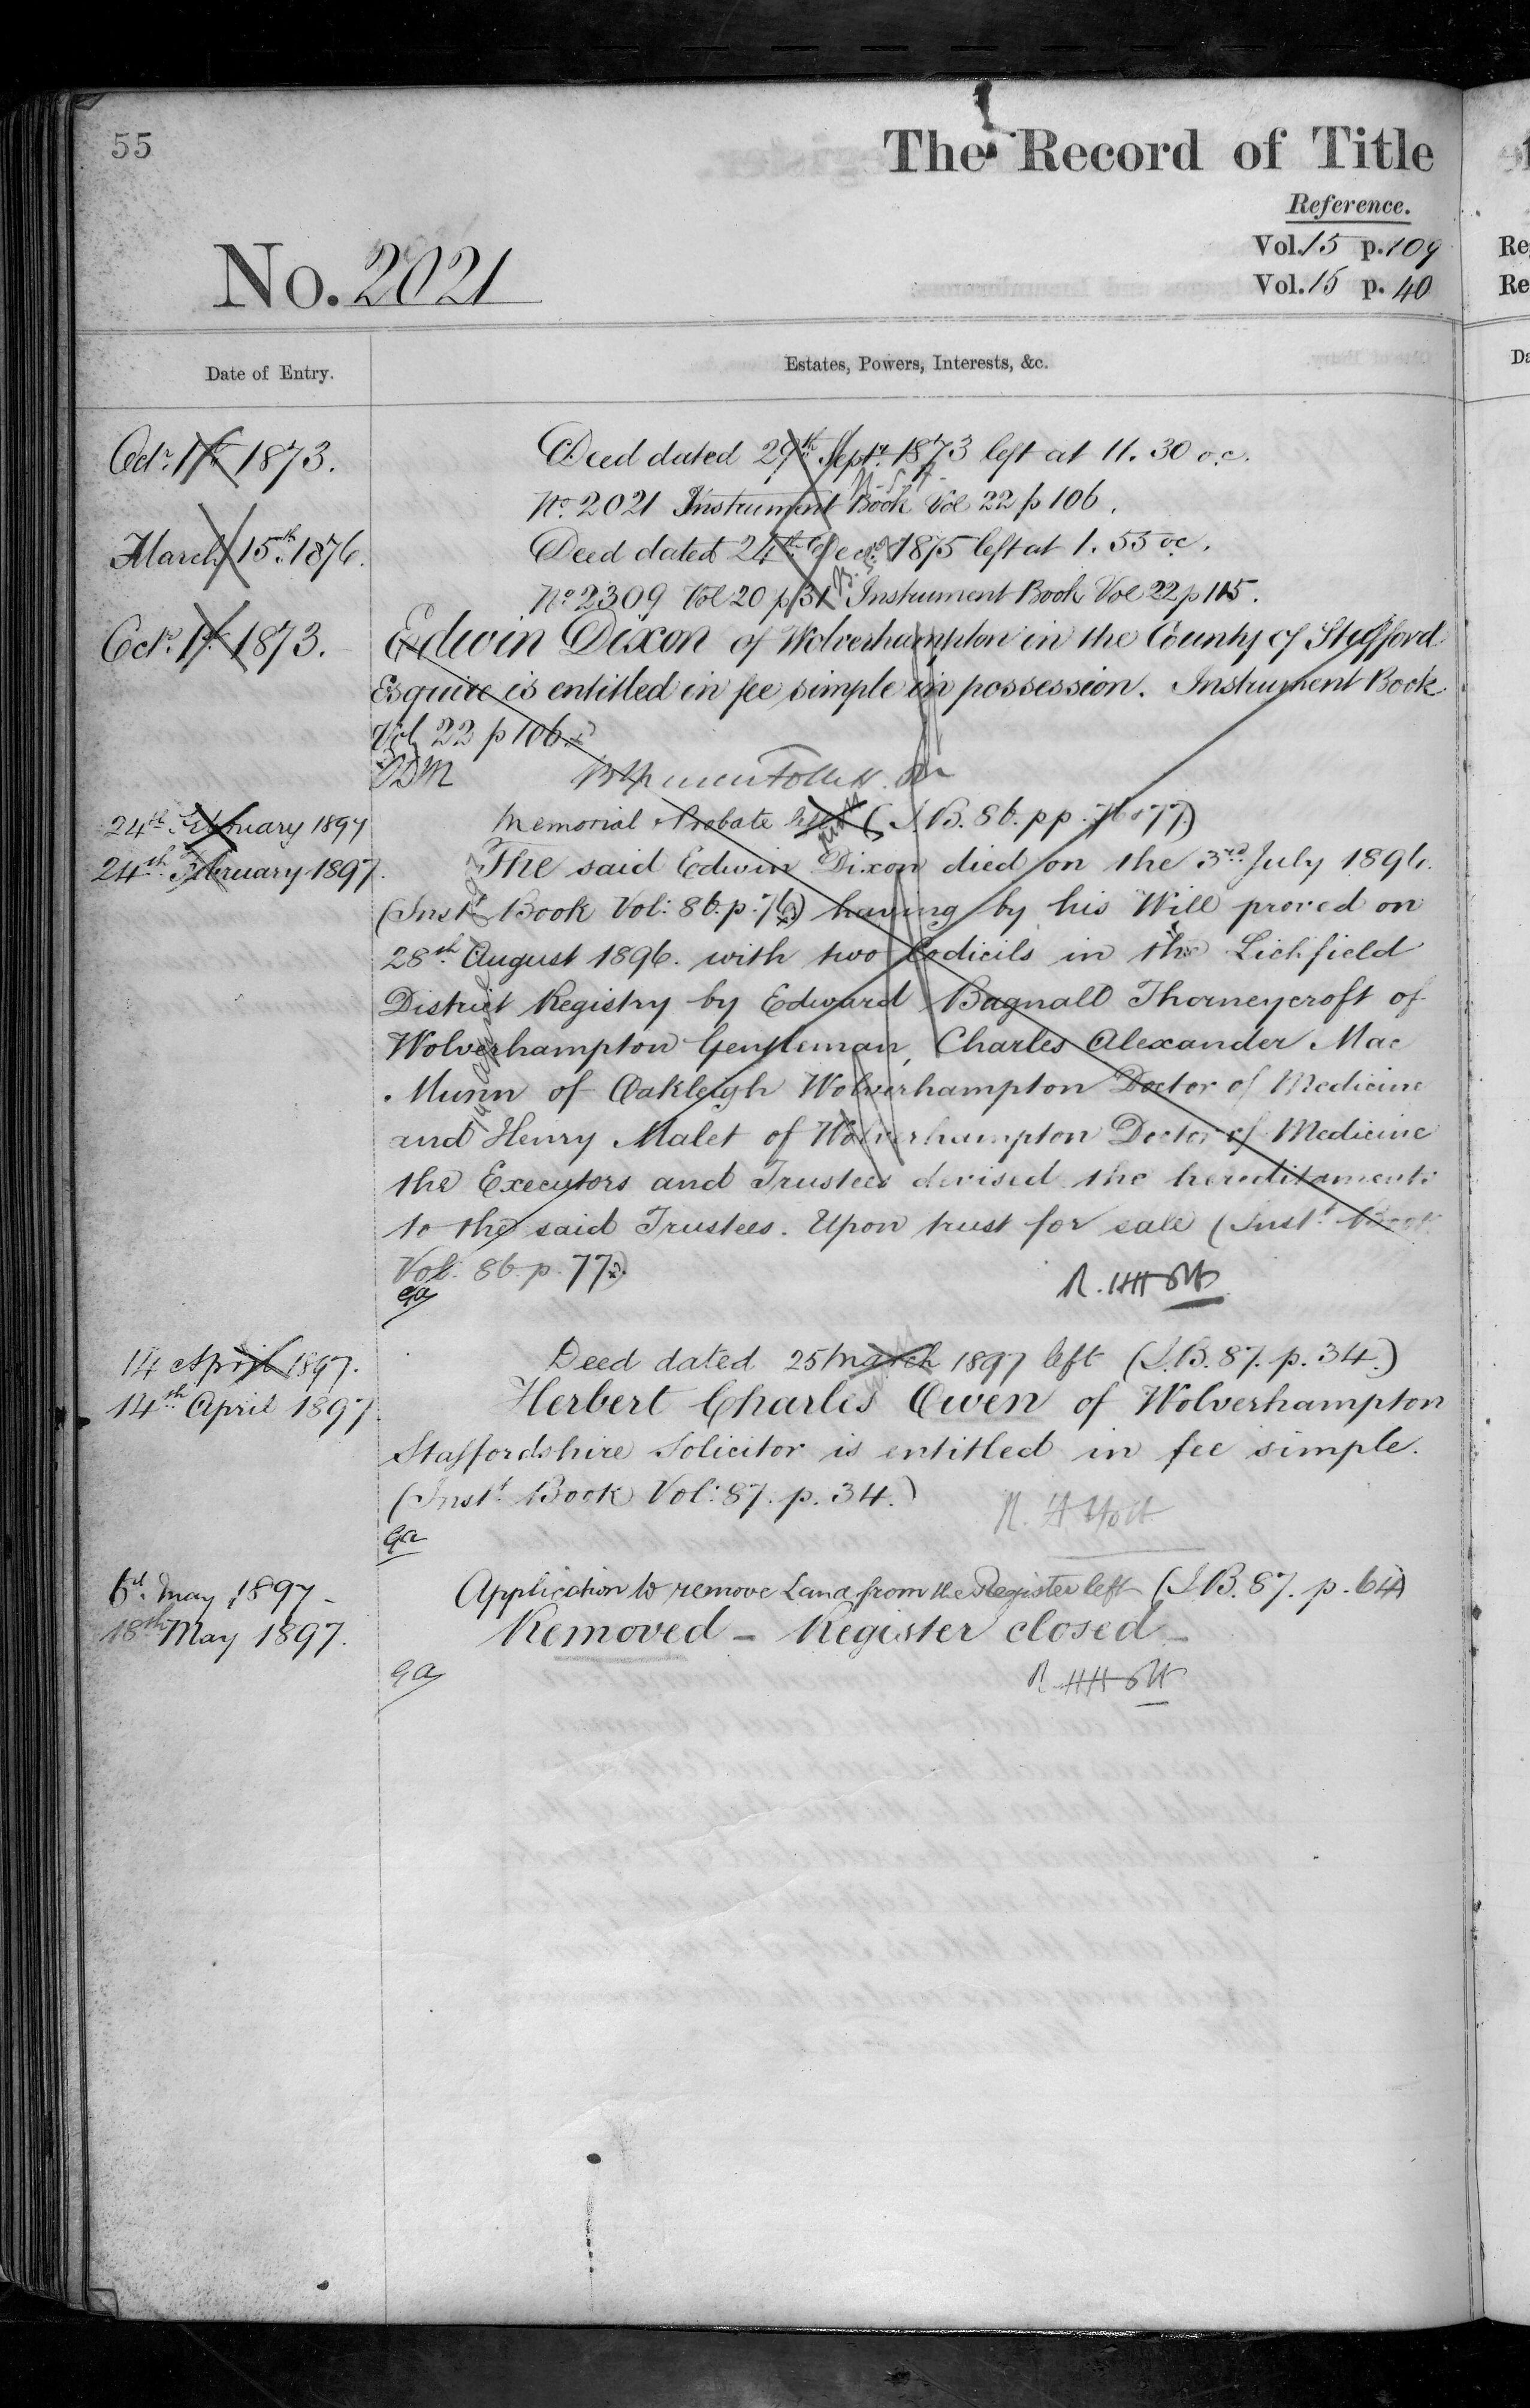 55
The Record of Title
Reference.
Vol. 15 p. 109
Vol. 15 p. 40
No. 2021
Date of Entry.
Estates, Powers, Interests, &c.
Octr. 1st 1873.
Deed dated 29th Septr. 1873 left at 11.30 o.c.
No. 2021 Instrument Book Vol 22 p 106.
March 15th 1876.
Deed dated 24th Decr. 1875 left at 1.55 o.c.
No. 2309 Vol 20 p 31 Instrument Book Vol 22 p 115.
Octr. 1st 1873.
Edwin Dixon of Wolverhampton in the County of Stafford
Esquire is entitled in fee simple in possession. Instrument Book
Vol 22 p 106.
24th February 1897
Memorial & Probate left (I.B. 86. pp. 76 & 77.)
24th February 1897.
The said Edwin Dixon died on the 3rd July 1896.
(Inst. Book Vol: 86. p. 76) having by his Will proved on
28th August 1896. with two Codicils in the Lichfield
District Registry by Edward Bagnall Thorneycroft of
Wolverhampton Gentleman, Charles Alexander Mac
Munn of Oakleigh Wolverhampton Doctor of Medicine
and Henry Malet of Wolverhampton Doctor of Medicine
the Executors and Trustees devised the hereditaments
to the said Trustees. Upon trust for sale (Inst. Book
Vol. 86. p. 77.)
GA
R. H Holt
14 April 1897.
Deed dated 25 March 1897 left (I.B. 87. p. 34.)
14th April 1897
Herbert Charles Owen of Wolverhampton
Staffordshire Solicitor is entitled in fee simple.
(Inst. Book Vol: 87. p. 34.)
R. H Holt
GA
6th May 1897
Application to remove Land from the Register left (I.B. 87. p. 64)
18th May 1897.
Removed - Register closed -
GA
R. H Holt